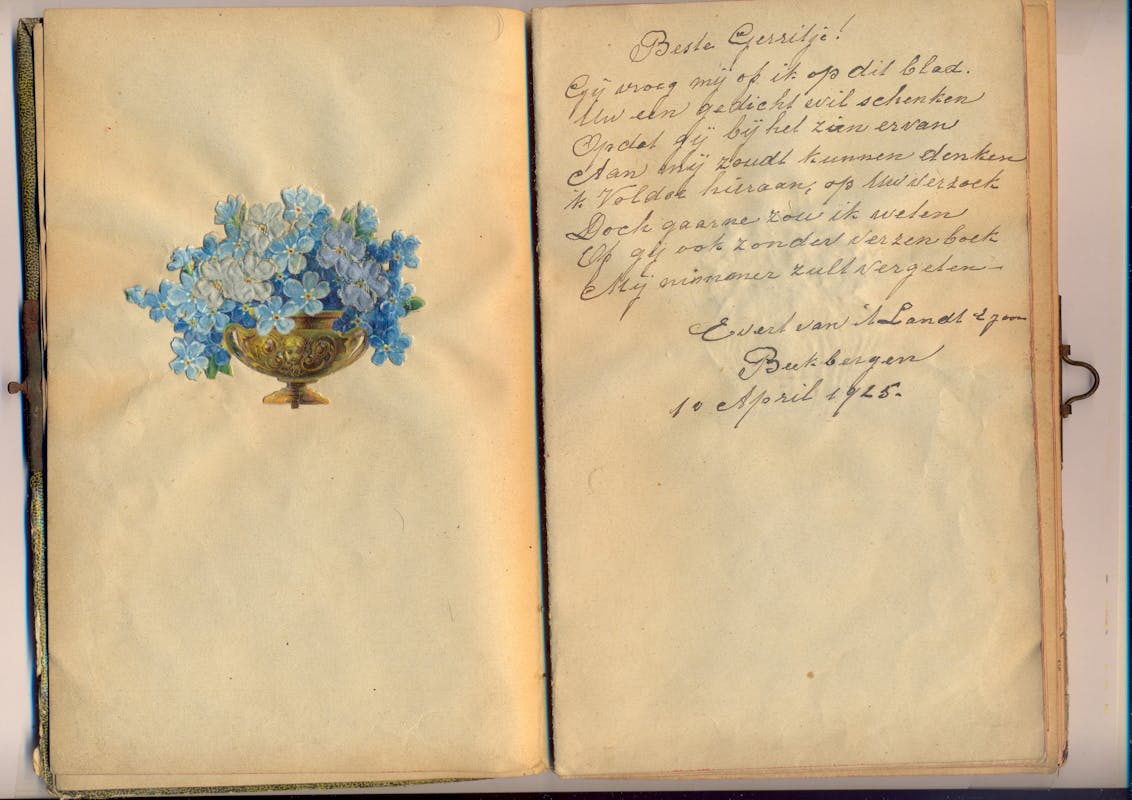 Beste Gerritje!
Gij vroeg mij of ik op dit blad.
Uw een gedicht wil schenken
Opdat gij bij het zien ervan
Aan mij zoudt kunnen denken
ik Voldoe hieraan, op Uw verzoek
Doch gaarne zou ik weten
Of gij ook zonder verzenboek
Mij nimmer zult vergeten—
Evert van 't Landt
Beekbergen
10 April 1925.